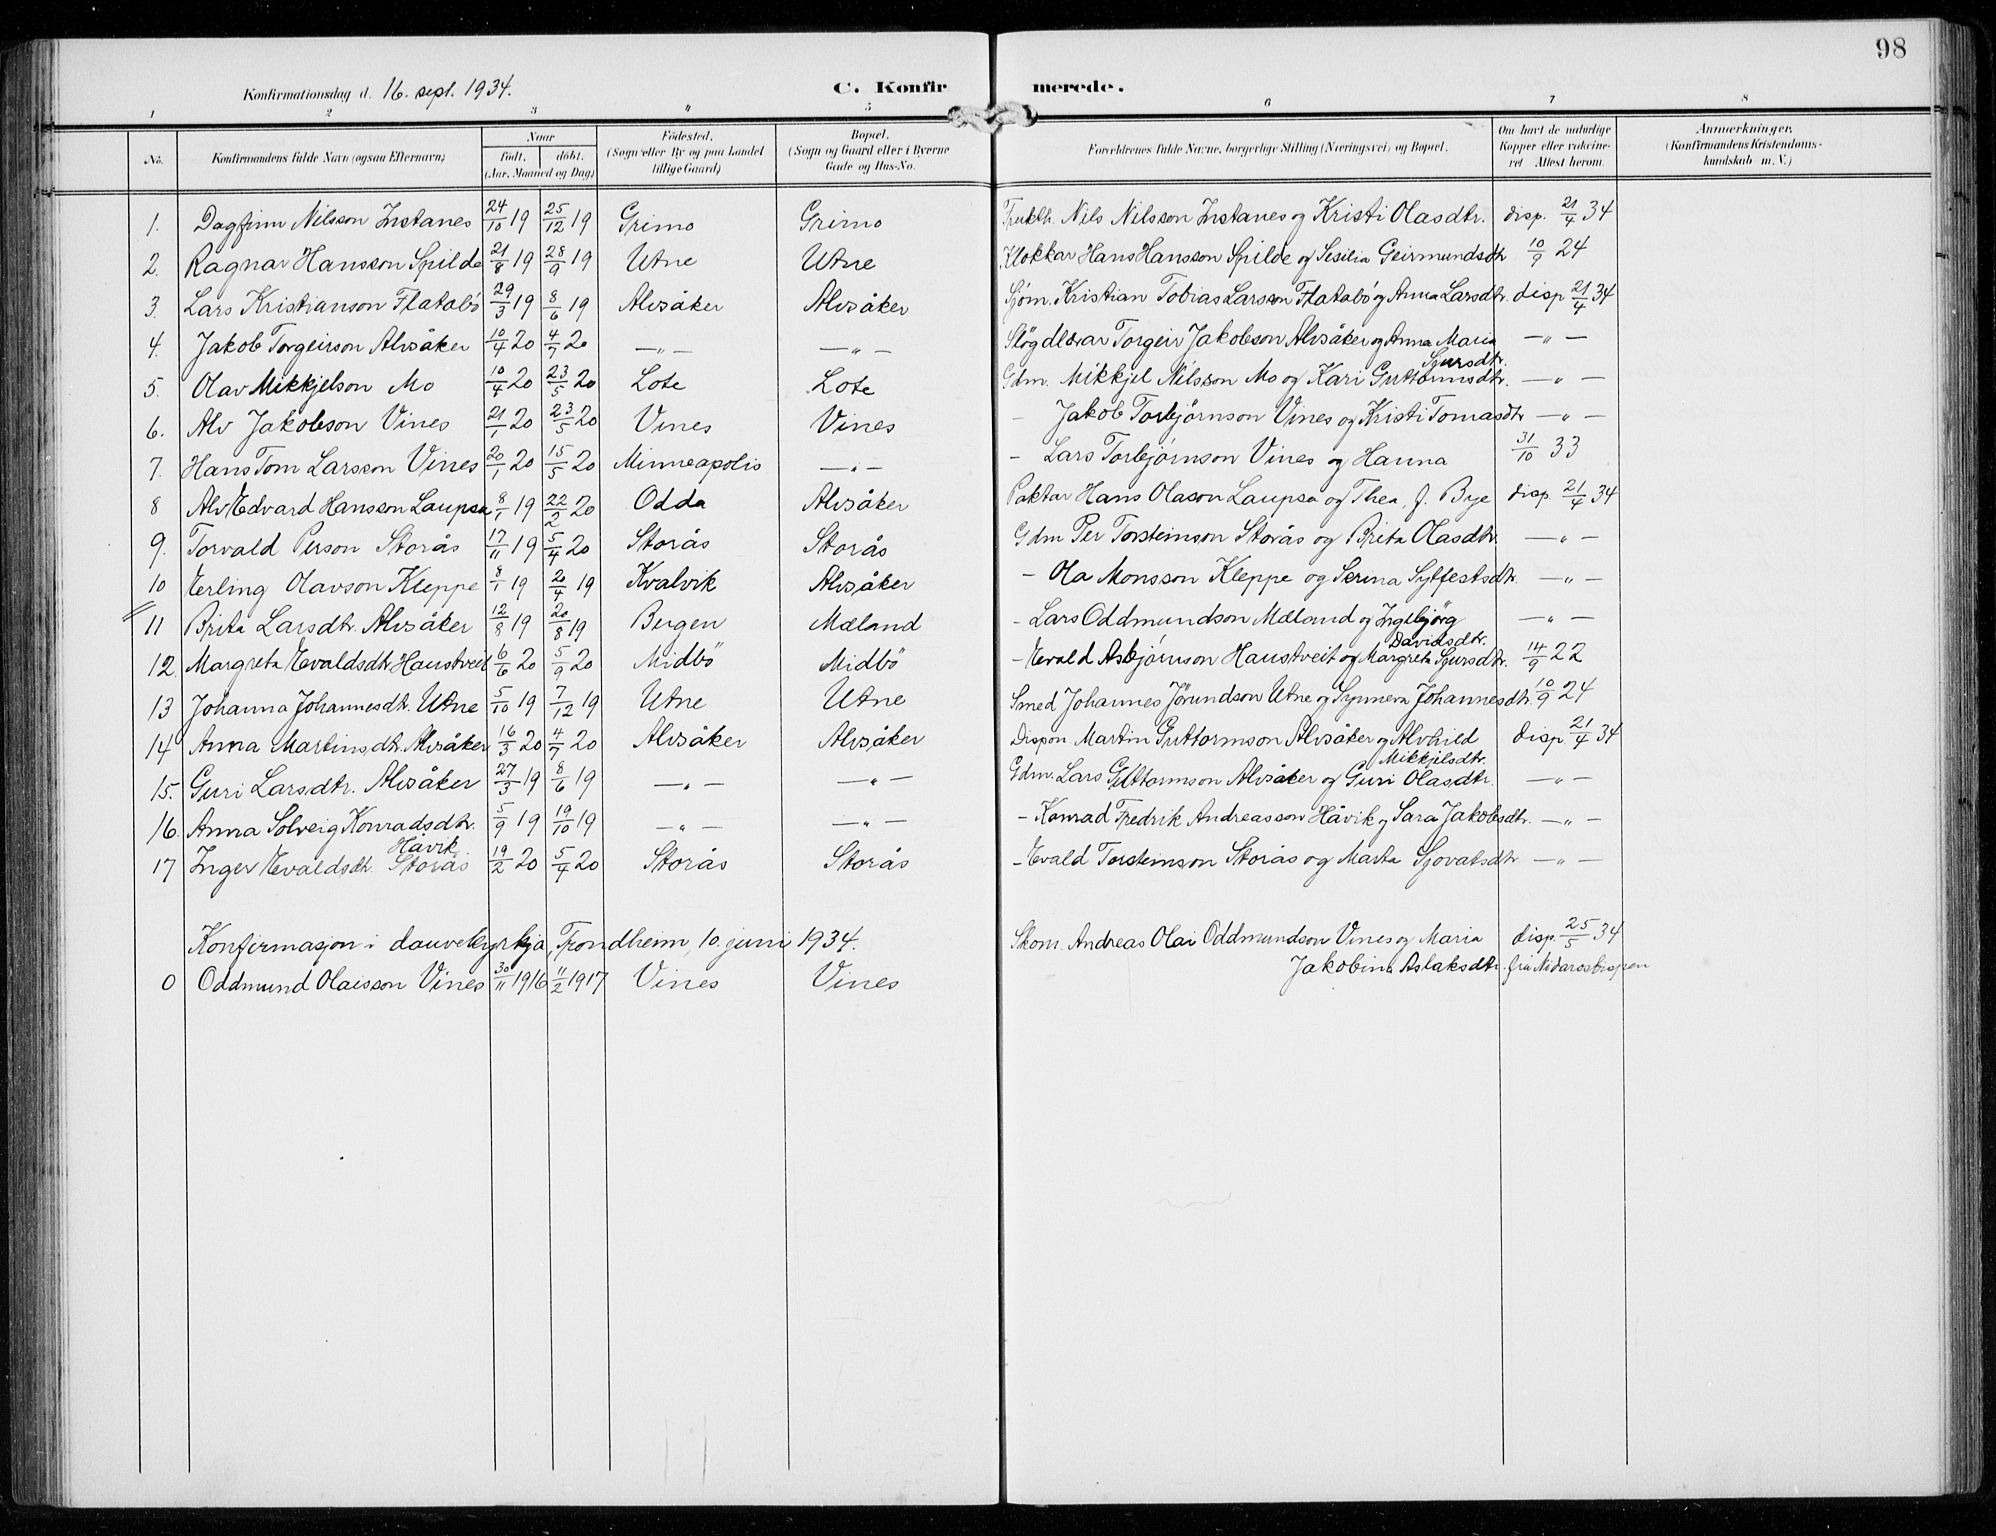 98
Konfirmationsdag d. 16. sept. 1934. C. Konfir merede.
1 2 3 4 5 6 7 8
No. Konfirmandens fulde Navn (ogsaa Efternavn) Naar født. døbt. (Aar, Maaned og Dag) Födested. (Sogn eller By og paa Landet tillige Gaard) Bopæl. (Sogn og Gaard eller i Byerne Gade og Hus-No. Forældrenes fulde Navne, borgerlige Stilling (Næringsvei) og Bopæl. Om havt de naturlige Kopper eller vakcineret Attest herom. Anmærkninger. (Konfirmandens Kristendomskundskab m. V.)
1. Dagfinn Nilsson Instanes 24/10 19 25/12 19 Grimo Grimo Frukth. Nils Nilsson Instanes og Kristi Olasdtr. disp. 21/4 34
2. Ragnar Hansson Spilde 21/8 19 28/9 19 Utne Utne Klokkar Hans Hansson Spilde og Sesilia Geirmundsdtr 10/9 24
3. Lars Kristianson Flatabö 29/3 19 8/6 19 Alvsåker Alvsåker Sjöm. Kristian Tobias Larsson Flatabö og Anna Larsdtr. disp 21/4 34
4. Jakob Torgeirson Alvsåker 10/4 20 4/7 20 — „ — — „ — Slögdlærar Torgeir Jakobson Alvsåker og Anna Maria Sjursdtr. — „ —
5. Olav Mikkjelson Mo 10/4 20 23/5 20 Lote Lote Gdm. Mikkjel Nilsson Mo og Kari Guttormsdtr. — „ —
6. Alv Jakobson Vines 21/1 20 23/5 20 Vines Vines - Jakob Torbjörnson Vines og Kristi Tomasdtr — „ —
7. Hans Tom Larsson Vines 20/1 20 15/5 20 Minneapolis — „ — - Lars Torbjörnson Vines og Hanna 31/10 33
8 Alv Edvard Hansson Laupsa 8/1 19 22/2 20 Odda Alvsåker Paktar Hans Olason Laupsa og Thea, f. Bye disp. 21/4 34
9. Torvald Person Storås 17/11 19 5/4 20 Storås Storås Gdm Per Torsteinson Storås og Brita Olasdtr. — „ —
10 Erling Olavson Kleppe 8/1 19 20/4 19 Kvalvik Alvsåker - Ola Monsson Kleppe og Serina Sylfestsdtr. — „ —
11 Brita Larsdtr. Alvsåker 12/8 19 20/8 19 Bergen Mæland - Lars Oddmundson Mæland og Ingebjörg Davidsdtr. — „ —
12. Margreta Evaldsdtr. Haustveit 6/6 20 5/9 20 Midbö Midbö - Evald Asbjörnson Haustveit og Margreta Sjursdtr. 14/9 22
13 Johanna Johannesdt. Utne 5/10 19 7/12 19 Utne Utne Smed Johannes Jörundson Utne og Synneva Johannesdtr. 10/9 24
14 Anna Martinsdtr. Alvsåker 16/3 20 4/7 20 Alvsåker Alvsåker Dispon. Martin Guttormson Alvsåker og Alvhild Mikkjelsdtr. disp. 21/4 34
15. Guri Larsdtr. Alvsåker 27/3 19 8/6 19 — „ — — „ — Gdm. Lars Guttormson Alvsåker og Guri Olasdtr. — „ —
16. Anna Solveig Konradsdtr. Håvik 5/9 19 19/10 19 — „ — — „ — - Konrad Fredrik Andreasson Håvik og Sara Jakobsdtr. — „ —
17 Inger Evaldsdtr. Storås 19/2 20 5/4 20 Storås Storås - Evald Torsteinson Storås og Marta Sjovatsdtr — „ —
Konfirmasjon i dauvekyrkja, Trondheim, 10. juni 1934. Skom. Andreas Olai Oddmundson Vines og Maria disp. 25/5 34
Jakobina Aslaksdtr. frå Nidarosbispen
0 Oddmund Olaisson Vines 30/11 1916 11/2 1917 Vines Vines